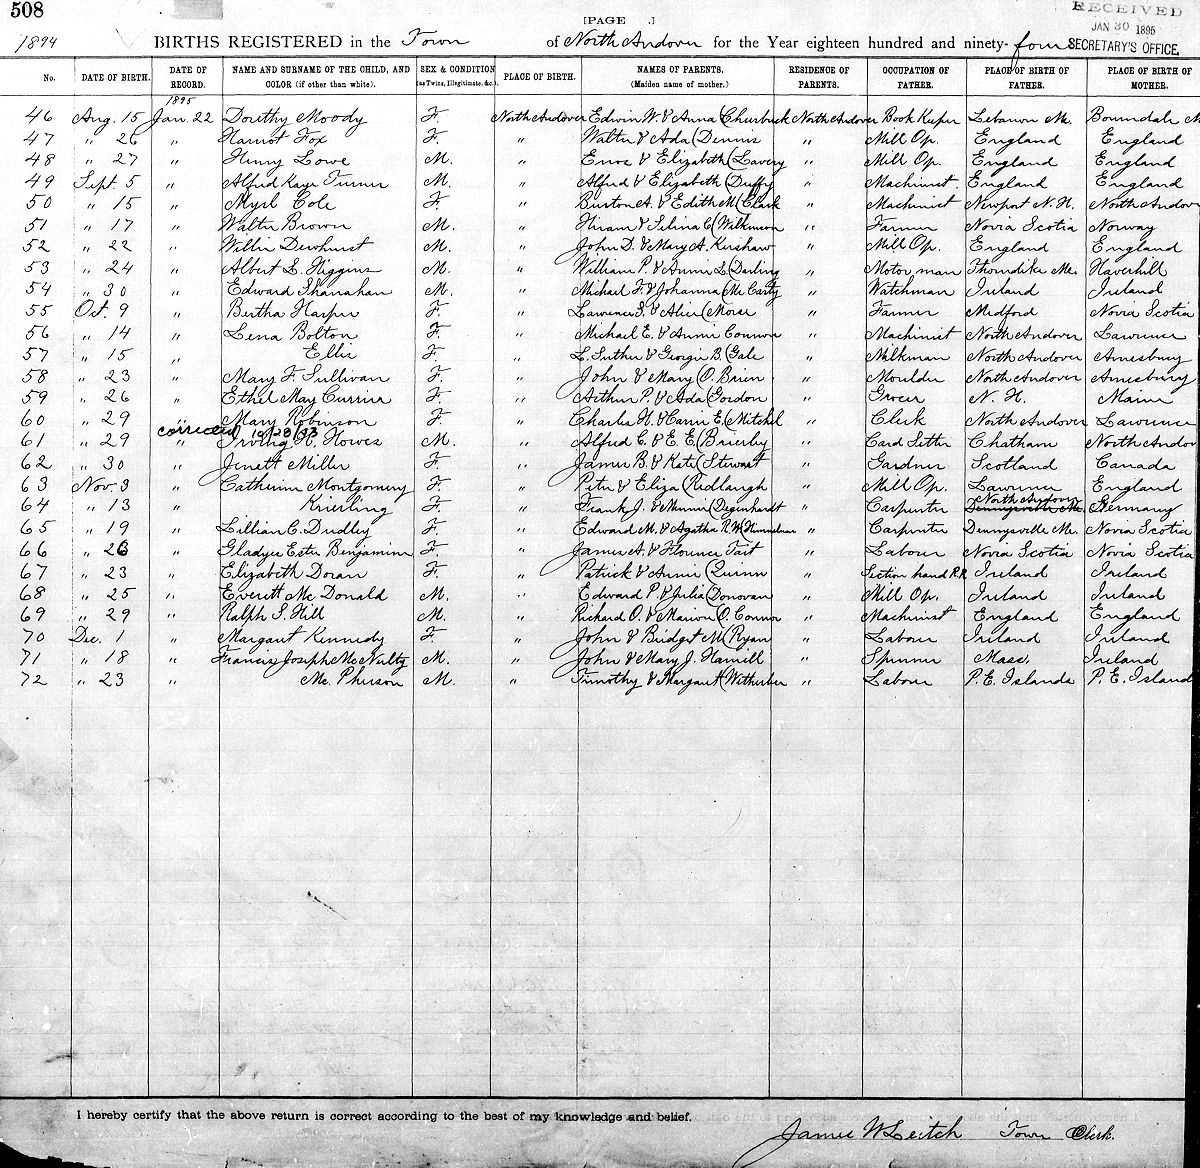 508
[PAGE .]
RECEIVED
JAN 30 1895
SECRETARY'S OFFICE.
1894 BIRTHS REGISTERED in the Town of North Andover for the Year eighteen hundred and ninety-four
No. DATE OF BIRTH. DATE OF RECORD. NAME AND SURNAME OF THE CHILD, AND COLOR (if other than white). SEX & CONDITION (as Twins, Illegitimate, &c.) PLACE OF BIRTH. NAMES OF PARENTS. (Maiden name of mother.) RESIDENCE OF PARENTS. OCCUPATION OF FATHER. PLACE OF BIRTH OF FATHER. PLACE OF BIRTH OF MOTHER.
1895
46 Aug. 15 Jan. 22 Dorothy Moody F. North Andover Edwin W. & Anna (Churbuck North Andover Book Keeper Lebanon Me. M
47 " 26 " Harriot Fox F. " Walter & Ada (Dennis " Mill Op. England England
48 " 27 " Henry Lowe M. " Enos & Elizabeth (Lavery " Mill Op. England England
49 Sept. 5 " Alfred Kaye Turner M. " Alfred & Elizabeth (Duffy " Machinist. England England
50 " 15 " Myrl Cole F. " Burton A. & Edith M. (Clark " Machinist Newport N.H. North Andov
51 " 17 " Walter Brown M. " Hiram & Selina C (Wilkinson " Farmer Novia Scotia Norway
52 " 22 " Willie Dewhurst M. " John D. & Mary A. Kershaw " Mill Op. England England
53 " 24 " Albert L. Higgins M. " William P. & Annie L (Darling " Motor man Thorndike Me. Haverhill
54 " 30 " Edward Shanahan M. " Michael F. & Johanna (Mc Carty " Watchman Ireland Ireland
55 Oct. 9 " Bertha Harper F. " Lawrence S. & Alice (Morse " Farmer Medford Novia Scotia
56 " 14 " Lena Bolton F. " Michael E. & Annie Connor " Machinist North Andover Lawrence
57 " 15 " Ellis F. " L. Suther & Georgie B. (Gale " Milkman North Andover Amesbury
58 " 23 " Mary F. Sullivan F. " John & Mary (O. Brien " Moulder North Andover Amesbury
59 " 26 " Ethel May Currier F. " Arthur P. & Ada (Gordon " Grocer N. H. Maine
60 " 29 Mary Robinson F. " Charles H. & Carrie E. (Mitchel " Clerk North Andover Lawrence
corrected
61 " 29 " Irving F. Howes M. " Alfred C. & E E. (Brierly " Card Setter Chatham North Andov
62 " 30 " Jenett Miller F. " James B. & Kate (Stewart " Gardner Scotland Canada
63 Nov 3 " Catherine Montgomery F. " Peter & Eliza (Redlaugh " Mill Op. Lawrence England
North Andover
64 " 13 " Krierling F. " Frank J. & Minnie (Degenhardt " Carpenter Dennysville Me. Germany
65 " 19 " Lillian C. Dudley F. " Edward M. & Agatha R. W. " Carpenter Dennysville Me. Novia Scotia
66 " 26 " Gladyce Ester Benjamin F. " James A. & Florence Tait " Labour Novia Scotia Novia Scotia
67 " 23 " Elizabeth Doran F. " Patrick & Annie (Quinn " Section hand R.R. Ireland Ireland
68 " 25 " Everett Mc Donald M. " Edward P. & Julia (Donovan " Mill Op. Ireland Ireland
69 " 29 " Ralph S. Hill M. " Richard O. & Marion (O. Connor " Machinist England England
70 Dec. 1 " Margaret Kennedy F. " John & Bridget M. (Ryan " Labour Ireland Ireland
71 " 18 " Francis Joseph Mc Nulty M. " John & Mary J. Hamill " Spinner Mass. Ireland
72 " 23 " Mc. Pherson M. " Timothy & Margaret (Witherbee " Labour P. E. Islands P. E. Island
I hereby certify that the above return is correct according to the best of my knowledge and belief.
James W Leitch Town Clerk.